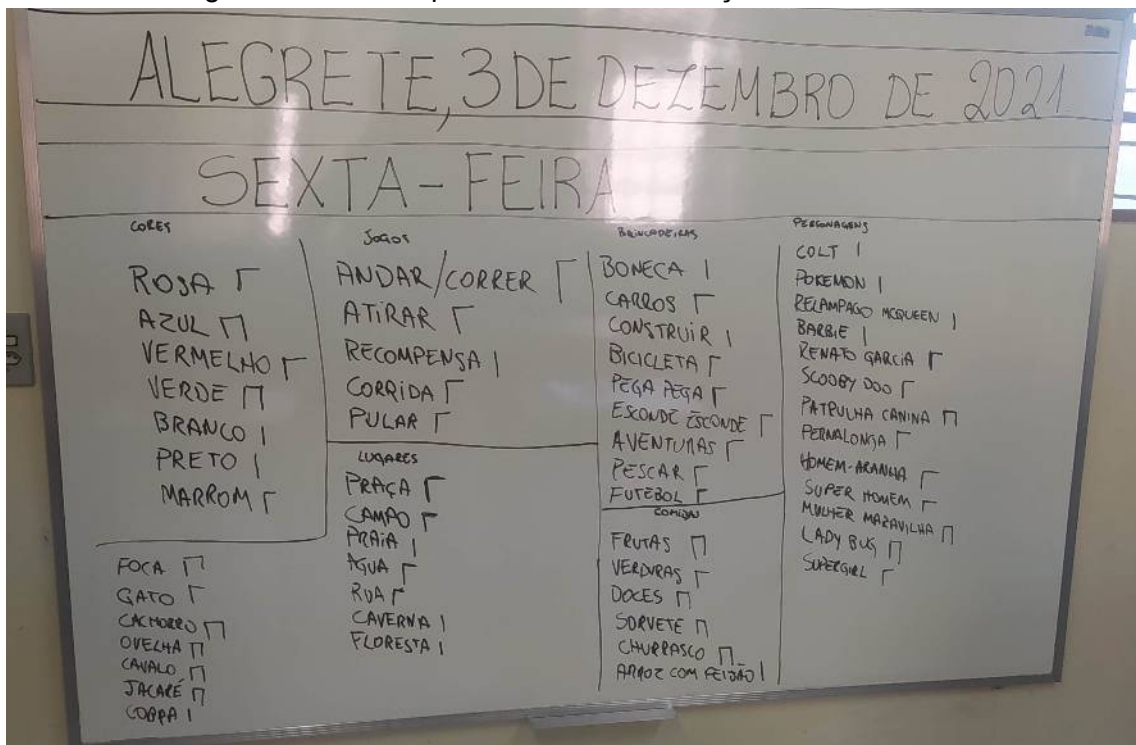 ALEGRETE, 3 DE DEZEMBRO DE 2021
SEXTA-FEIRA
CORES
ROSA
AZUL
VERMELHO
VERDE
BRANCO
PRETO
MARROM
FOCA
GATO
CACHORRO
OVELHA
CAVALO
JACARÉ
COBRA
JOGOS
ANDAR/CORRER
ATIRAR
RECOMPENSA
CORRIDA
PULAR
LUGARES
PRAÇA
CAMPO
PRAIA
ÁGUA
RUA
CAVERNA
FLORESTA
BRINCADEIRAS
BONECA
CARROS
CONSTRUIR
BICICLETA
PEGA PEGA
ESCONDE ESCONDE
AVENTURAS
PESCAR
FUTEBOL
COMIDAS
FRUTAS
VERDURAS
DOCES
SORVETE
CHURRASCO
ARROZ COM FEIJÃO
PERSONAGENS
COLT
POKEMON
RELAMPAGO MCQUEEN
BARBIE
RENATO GARCIA
SCOOBY DOO
PATRULHA CANINA
PERNALONGA
HOMEM-ARANHA
SUPER HOMEM
MULHER MARAVILHA
LADY BUG
SUPERGIRL